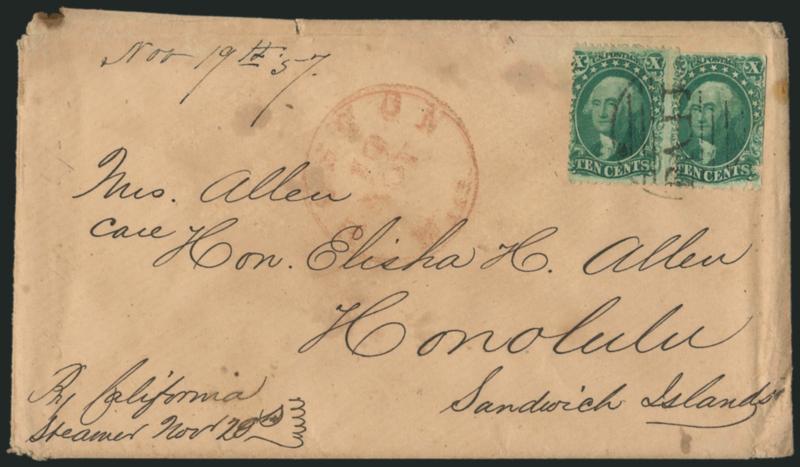 Nov 19th '57.
U.S. POSTAGE
X X
TEN CENTS
U.S. POSTAGE
X X
TEN CENTS
PAID
Mrs. Allen
Care Hon. Elisha H. Allen
Honolulu
Sandwich Islands
Pr California
Steamer Novr 20th